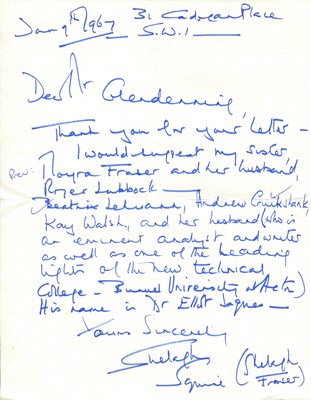 Jan 9th 1967 31 Cadogan Place
S.W.1
Dear Mr Glendenning,
Thank you for your letter –
I would suggest my sister,
Moyra Fraser and her husband,
Roger Lubbock –
Beatrix Lehmann, Andrew Cruikshank,
Kay Walsh, and her husband (who is
an eminent analyst and writer
as well as one of the leading
lights of the new technical
College – Brunel University at Acton)
His name is Dr Elliot Jaques –
Yours Sincerely
Shelagh
Squire (Shelagh
Fraser)